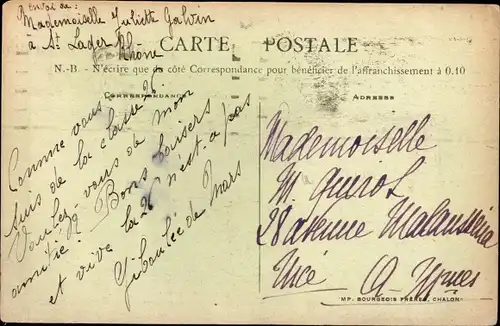 Envoi de :
Mademoiselle Juliette Galvin
à St Lager Rhône
CARTE POSTALE
N.-B. - N'écrire que du côté Correspondance pour bénéficier de l'affranchissement à 0.10
CORRESPONDANCE
ADRESSE
Comme vous je
suis de la classe 26.
Voulez-vous de mon
amitié ? Bons baisers
et vive la 26 n'est-à pas
Giboulée de Mars
Mademoiselle
M.
28 avenue Malausséna
Nice A-
IMP. BOURGEOIS FRÈRES, CHALON